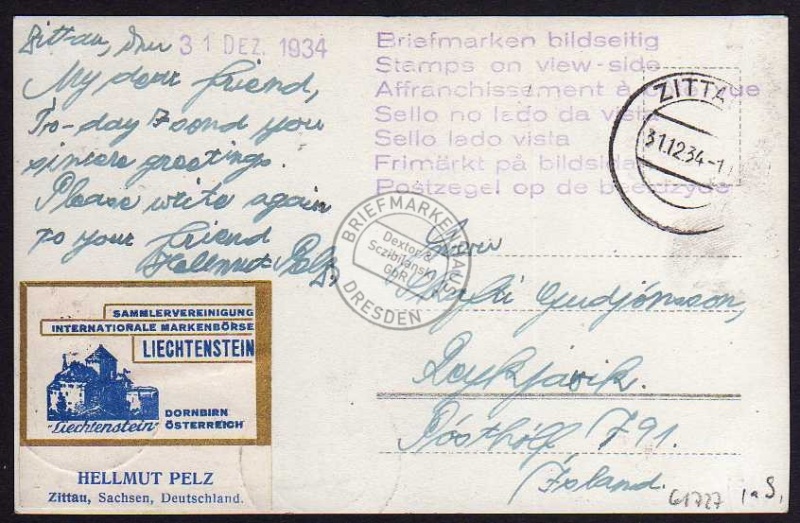 Zittau, den 31 DEZ. 1934
My dear friend,
To-day I send you
sincere greetings.
Please write again
to your friend
Hellmut Pelz,
Briefmarken bildseitig
Stamps on view-side
Affranchissement à
Sello no lado da vista
Sello lado vista
Frimärkt på bildsidan
Postzegel op de beeldzyde
ZITTAU
31.12.34-1
BRIEFMARKENHAUS
Dextor &
Sczibilanski
GbR
DRESDEN
Gudjónsson,
Reykjavik.
Pósthólf 791.
Ísland.
SAMMLERVEREINIGUNG
INTERNATIONALE MARKENBÖRSE
LIECHTENSTEIN
DORNBIRN
"Liechtenstein" ÖSTERREICH
HELLMUT PELZ
Zittau, Sachsen, Deutschland.
61727